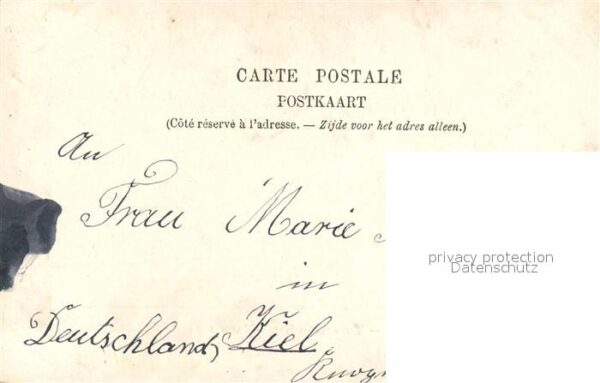 CARTE POSTALE
POSTKAART
(Côté réservé à l'adresse. — Zijde voor het adres alleen.)
An
Frau Marie
privacy protection
Datenschutz
in
Deutschland, Kiel